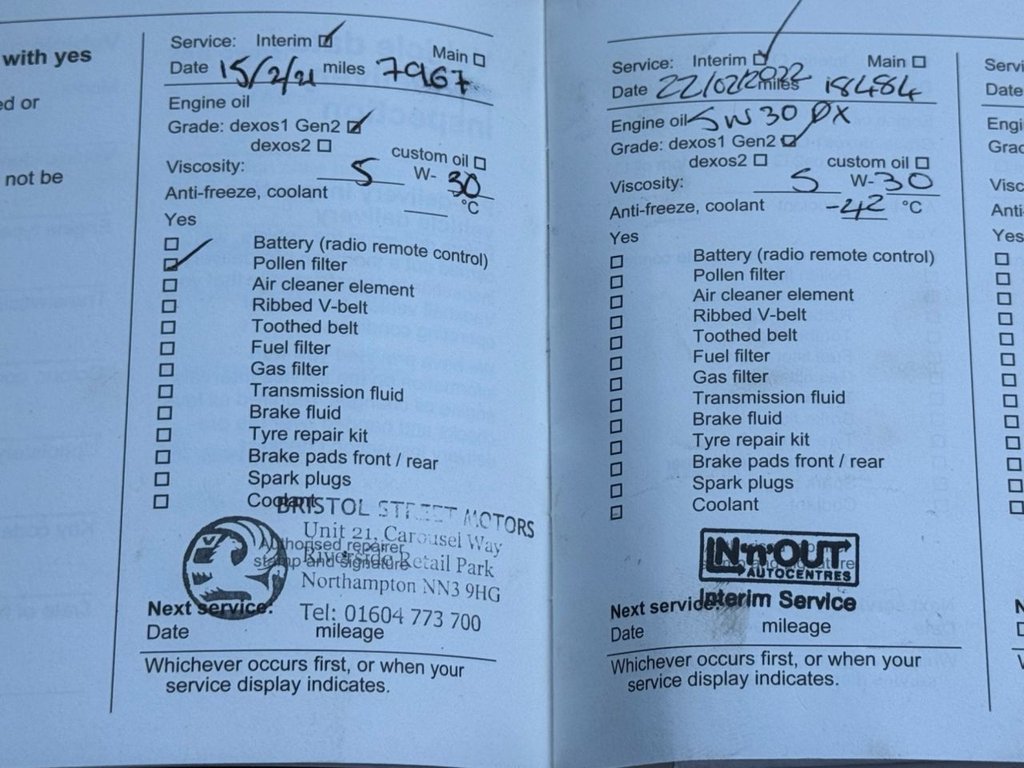 with yes
ed or
not be
Service: Interim ☑ Main ☐
Date 15/2/21 miles 7967
Engine oil
Grade: dexos1 Gen2 ☑
dexos2 ☐ custom oil ☐
Viscosity: 5 W- 30
Anti-freeze, coolant °C
Yes
☐ Battery (radio remote control)
☑ Pollen filter
☐ Air cleaner element
☐ Ribbed V-belt
☐ Toothed belt
☐ Fuel filter
☐ Gas filter
☐ Transmission fluid
☐ Brake fluid
☐ Tyre repair kit
☐ Brake pads front / rear
☐ Spark plugs
☐ Coolant
BRISTOL STREET MOTORS
Unit 21, Carousel Way
Authorised repairer
Riverside Retail Park
stamp and signature
Northampton NN3 9HG
Tel: 01604 773 700
Next service:
Date mileage
Whichever occurs first, or when your
service display indicates.
Service: Interim ☑ Main ☐
Date 22/02/2022 miles 18484
Engine oil 5W30 DX
Grade: dexos1 Gen2 ☑
dexos2 ☐ custom oil ☐
Viscosity: 5 W- 30
Anti-freeze, coolant -42 °C
Yes
☐ Battery (radio remote control)
☐ Pollen filter
☐ Air cleaner element
☐ Ribbed V-belt
☐ Toothed belt
☐ Fuel filter
☐ Gas filter
☐ Transmission fluid
☐ Brake fluid
☐ Tyre repair kit
☐ Brake pads front / rear
☐ Spark plugs
☐ Coolant
IN'n'OUT
AUTOCENTRES
Interim Service
Next service:
Date mileage
Whichever occurs first, or when your
service display indicates.
Servi
Date
Engi
Grad
Visc
Anti-
Yes